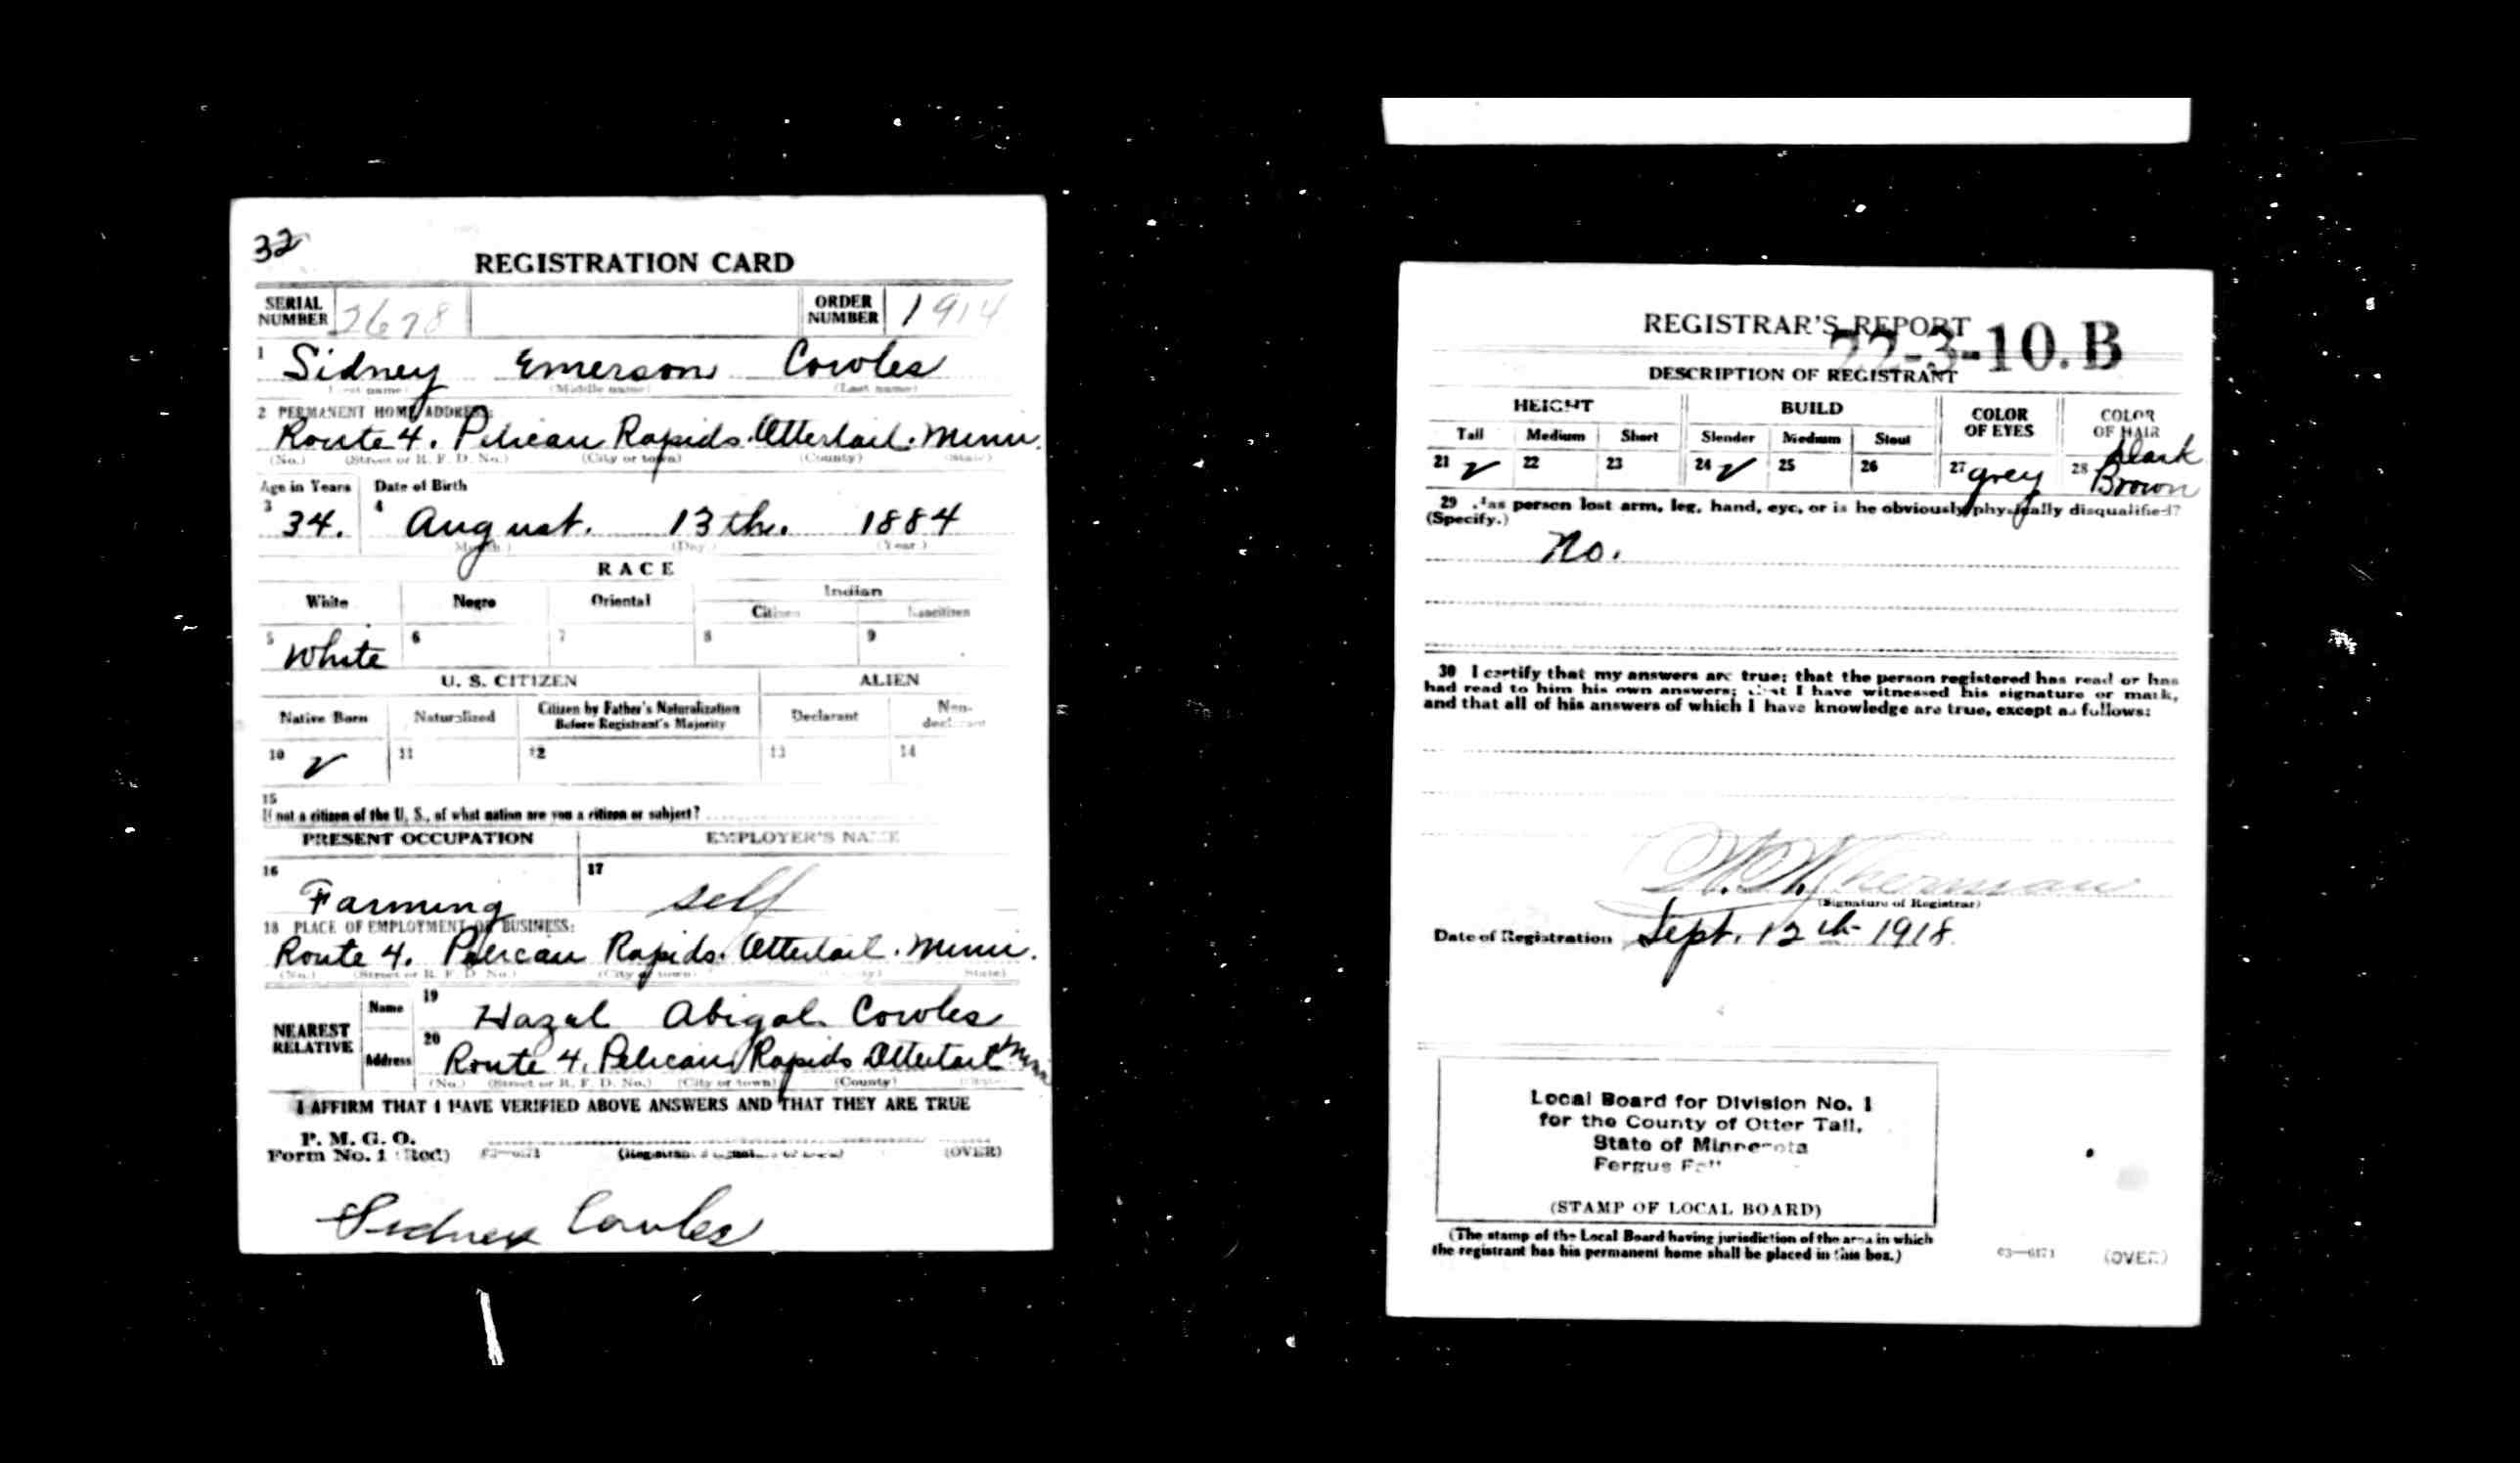 32
REGISTRATION CARD
SERIAL NUMBER 2678 ORDER NUMBER 1914
1 Sidney Emerson Cowles
(First name) (Middle name) (Last name)
2 PERMANENT HOME ADDRESS:
Route 4. Pelican Rapids. Ottertail. Minn.
(No.) (Street or R. F. D. No.) (City or town) (County) (State)
Age in Years Date of Birth
3 34. 4 August. 13th. 1884
(Month) (Day) (Year)
RACE
White Negro Oriental Indian
Citizen Noncitizen
5 White 6 7 8 9
U. S. CITIZEN ALIEN
Native Born Naturalized Citizen by Father's Naturalization Before Registrant's Majority Declarant Non-declarant
10 ✓ 11 12 13 14
15
If not a citizen of the U. S., of what nation are you a citizen or subject?
PRESENT OCCUPATION EMPLOYER'S NAME
16 Farming 17 self
18 PLACE OF EMPLOYMENT OR BUSINESS:
Route 4. Pelican Rapids. Ottertail. Minn.
(No.) (Street or R. F. D. No.) (City or town) (County) (State)
NEAREST RELATIVE
Name 19 Hazel Abigal Cowles
Address 20 Route 4, Pelican Rapids Ottertail Minn
(No.) (Street or R. F. D. No.) (City or town) (County) (State)
I AFFIRM THAT I HAVE VERIFIED ABOVE ANSWERS AND THAT THEY ARE TRUE
P. M. G. O.
Form No. 1 (Red) 03—6171 (OVER)
Sidney Cowles
REGISTRAR'S REPORT
22-3-10. B
DESCRIPTION OF REGISTRANT
HEIGHT BUILD COLOR OF EYES COLOR OF HAIR
Tall Medium Short Slender Medium Stout
21 ✓ 22 23 24 ✓ 25 26 27 grey 28 Dark Brown
29 Has person lost arm, leg, hand, eye, or is he obviously physically disqualified?
(Specify.)
No.
30 I certify that my answers are true; that the person registered has read or has
had read to him his own answers; that I have witnessed his signature or mark,
and that all of his answers of which I have knowledge are true, except as follows:
(Signature of Registrar)
Date of Registration Sept. 12th 1918
Local Board for Division No. 1
for the County of Otter Tail,
State of Minnesota
Fergus Falls
(STAMP OF LOCAL BOARD)
(The stamp of the Local Board having jurisdiction of the area in which
the registrant has his permanent home shall be placed in this box.)
03—6171 (OVER)